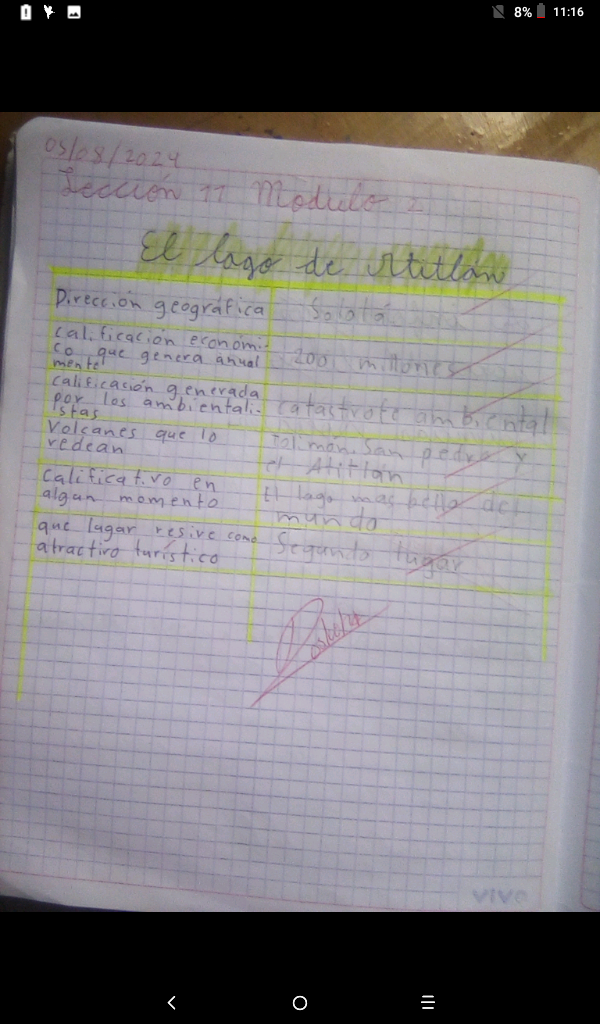 8% 11:16
05/08/2024
Lección 11 Modulo 2
El lago de Atitlán
Dirección geográfica
Sololá
calificación económi-
co que genera anual
mente
200 millones
calificación generada
por los ambientali-
istas
catastrofe ambiental
Volcanes que lo
redean
Tolimán, San pedro y
el Atitlán
calificativo en
algun momento
El lago mas bello del
mundo
que lugar resive como
atractivo turístico
Segundo lugar
vivo